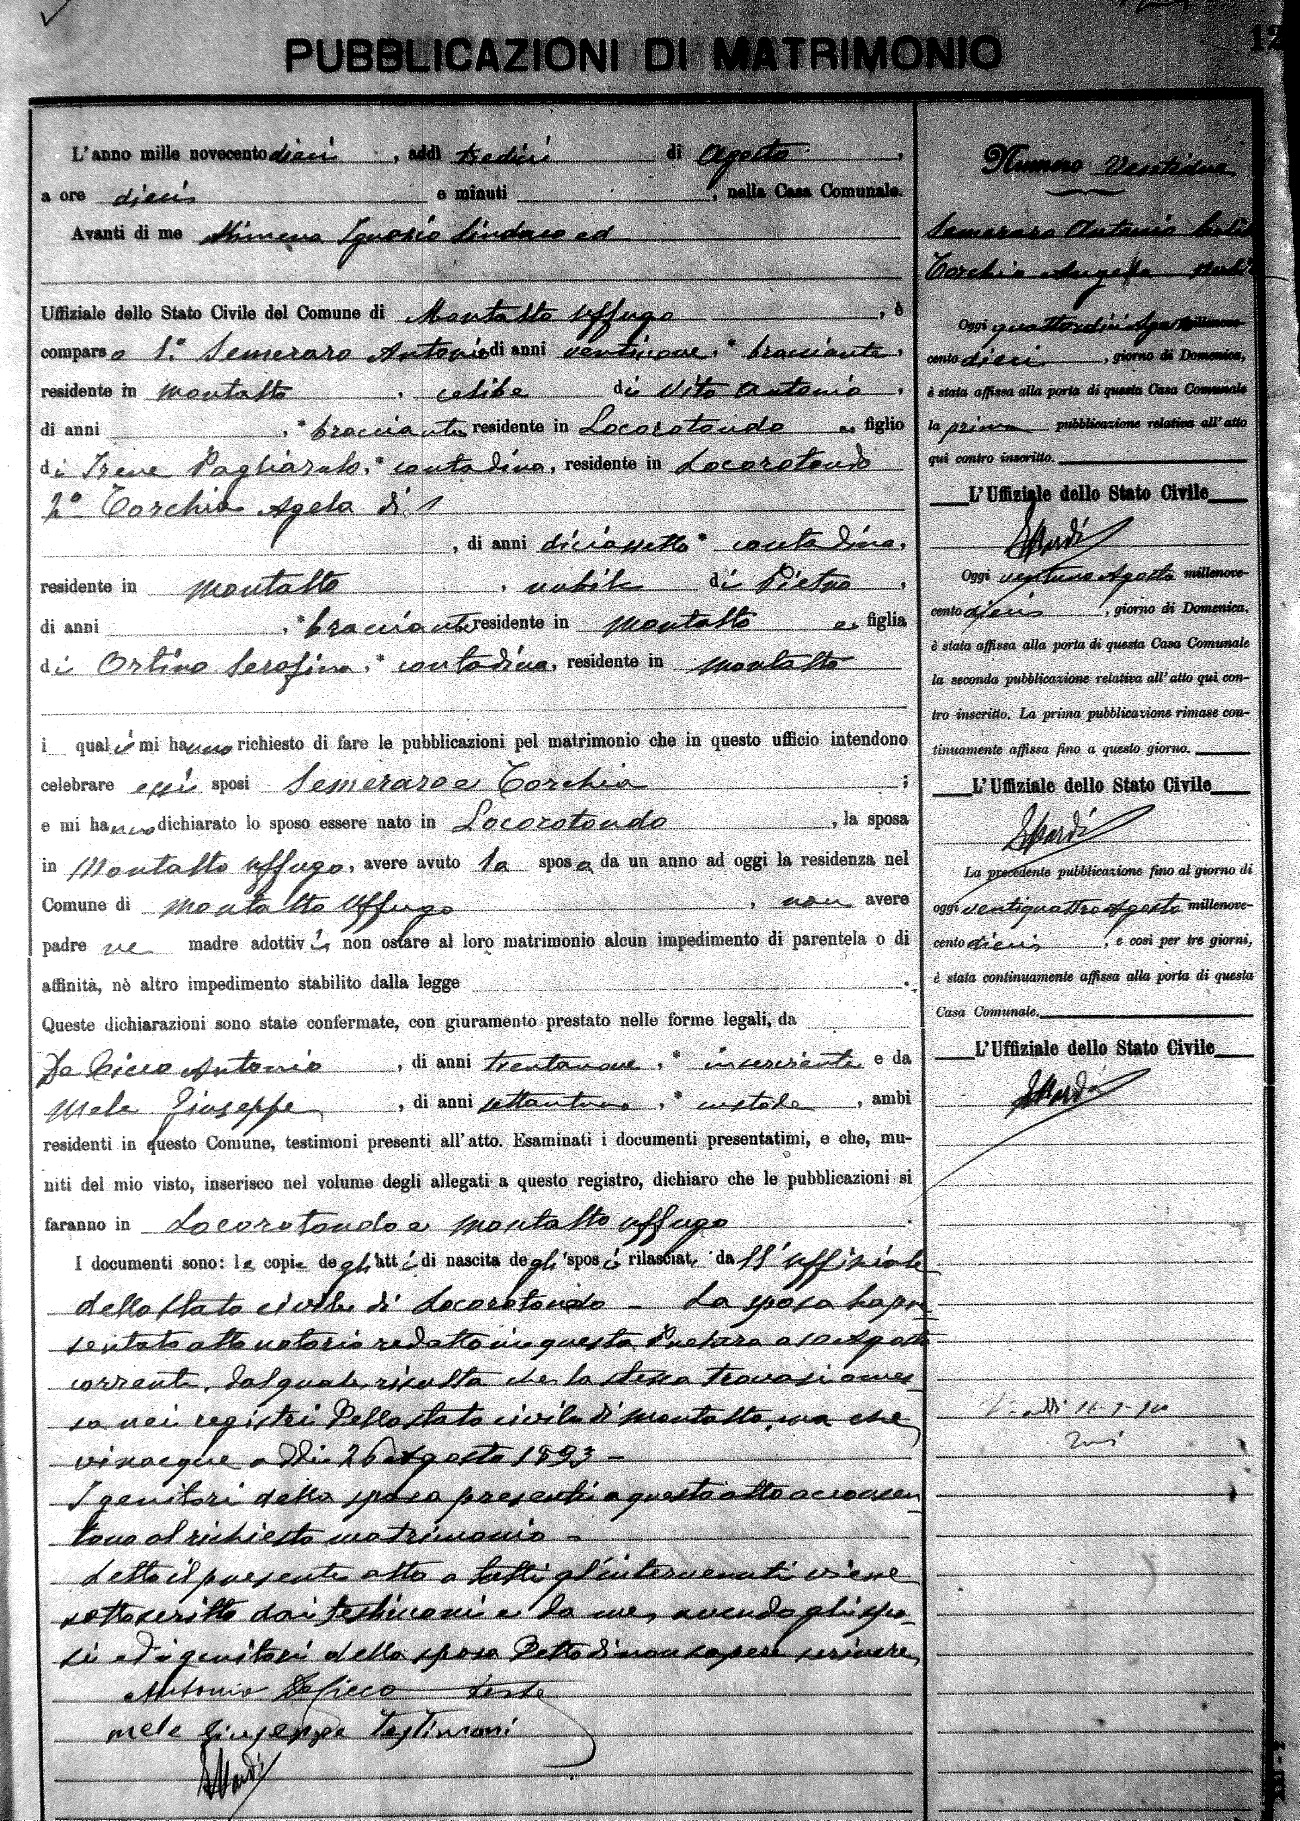 PUBBLICAZIONI DI MATRIMONIO
12
L'anno mille novecento dieci, addì tredici di Agosto,
a ore dieci e minuti , nella Casa Comunale.
Avanti di me Ignazio Sindaco ed
Uffiziale dello Stato Civile del Comune di Montalto Uffugo, è
comparso 1.° Semeraro Antonio di anni ventinove, * bracciante,
residente in Montalto, celibe di Vito Antonio,
di anni , * bracciante residente in Locorotondo e figlio
di Irene Pagliarulo, * contadina, residente in Locorotondo
2° Torchia Agela di
, di anni diciassette * contadina,
residente in Montalto, nubile di Pietro,
di anni , * bracciante residente in Montalto e figlia
di Ortino Serafina, * contadina, residente in Montalto
i quali mi hanno richiesto di fare le pubblicazioni pel matrimonio che in questo ufficio intendono
celebrare essi sposi Semeraro e Torchia ;
e mi hanno dichiarato lo sposo essere nato in Locorotondo, la sposa
in Montalto Uffugo, avere avuto la sposa da un anno ad oggi la residenza nel
Comune di Montalto Uffugo, non avere
padre ne madre adottivi non ostare al loro matrimonio alcun impedimento di parentela o di
affinità, nè altro impedimento stabilito dalla legge .
Queste dichiarazioni sono state confermate, con giuramento prestato nelle forme legali, da
De Cicco Antonio, di anni trentanove, * inserviente e da
Mele Giuseppe, di anni settantuno, * custode, ambi
residenti in questo Comune, testimoni presenti all'atto. Esaminati i documenti presentatimi, e che, mu-
niti del mio visto, inserisco nel volume degli allegati a questo registro, dichiaro che le pubblicazioni si
faranno in Locorotondo e Montalto Uffugo.
I documenti sono: le copie degli atti di nascita degli sposi rilasciati dall'uffiziale
dello stato civile di Locorotondo - La sposa ha pre
sentato atto notorio redatto in questa Pretura Agosto
corrente, dal quale risulta che la stessa trovasi omes
sa nei registri dello stato civile di Montalto, ma che
vi nacque addì 26 Agosto 1893 -
I genitori della sposa presenti a questo atto acconsen
tono al richiesto matrimonio -
Letto il presente atto a tutti gl'intervenuti viene
sottoscritto dai testimoni e da me, avendo gli spo-
si ed i genitori della sposa detto di non sapere scrivere
Antonio De Cicco teste
Mele Giuseppe Testimoni
Numero Ventidue
Semeraro Antonio
Torchia Angela
Oggi quattordici Agosto millenove-
cento dieci, giorno di Domenica,
è stata affissa alla porta di questa Casa Comunale
la prima pubblicazione relativa all'atto
qui contro inscritto.
L'Uffiziale dello Stato Civile
Oggi ventuno Agosto millenove-
cento dieci, giorno di Domenica,
è stata affissa alla porta di questa Casa Comunale
la seconda pubblicazione relativa all'atto qui con-
tro inscritto. La prima pubblicazione rimase con-
tinuamente affissa fino a questo giorno.
L'Uffiziale dello Stato Civile
La precedente pubblicazione fino al giorno di
oggi ventiquattro Agosto millenove-
cento dieci, e così per tre giorni,
è stata continuamente affissa alla porta di questa
Casa Comunale.
L'Uffiziale dello Stato Civile